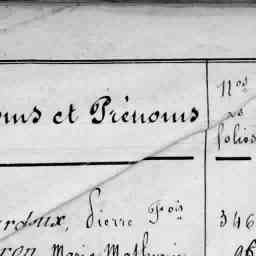 oms et Prénoms
Nos
des
folios
rdoux, Pierre Fois 346
ron, Marie Mathurin 26